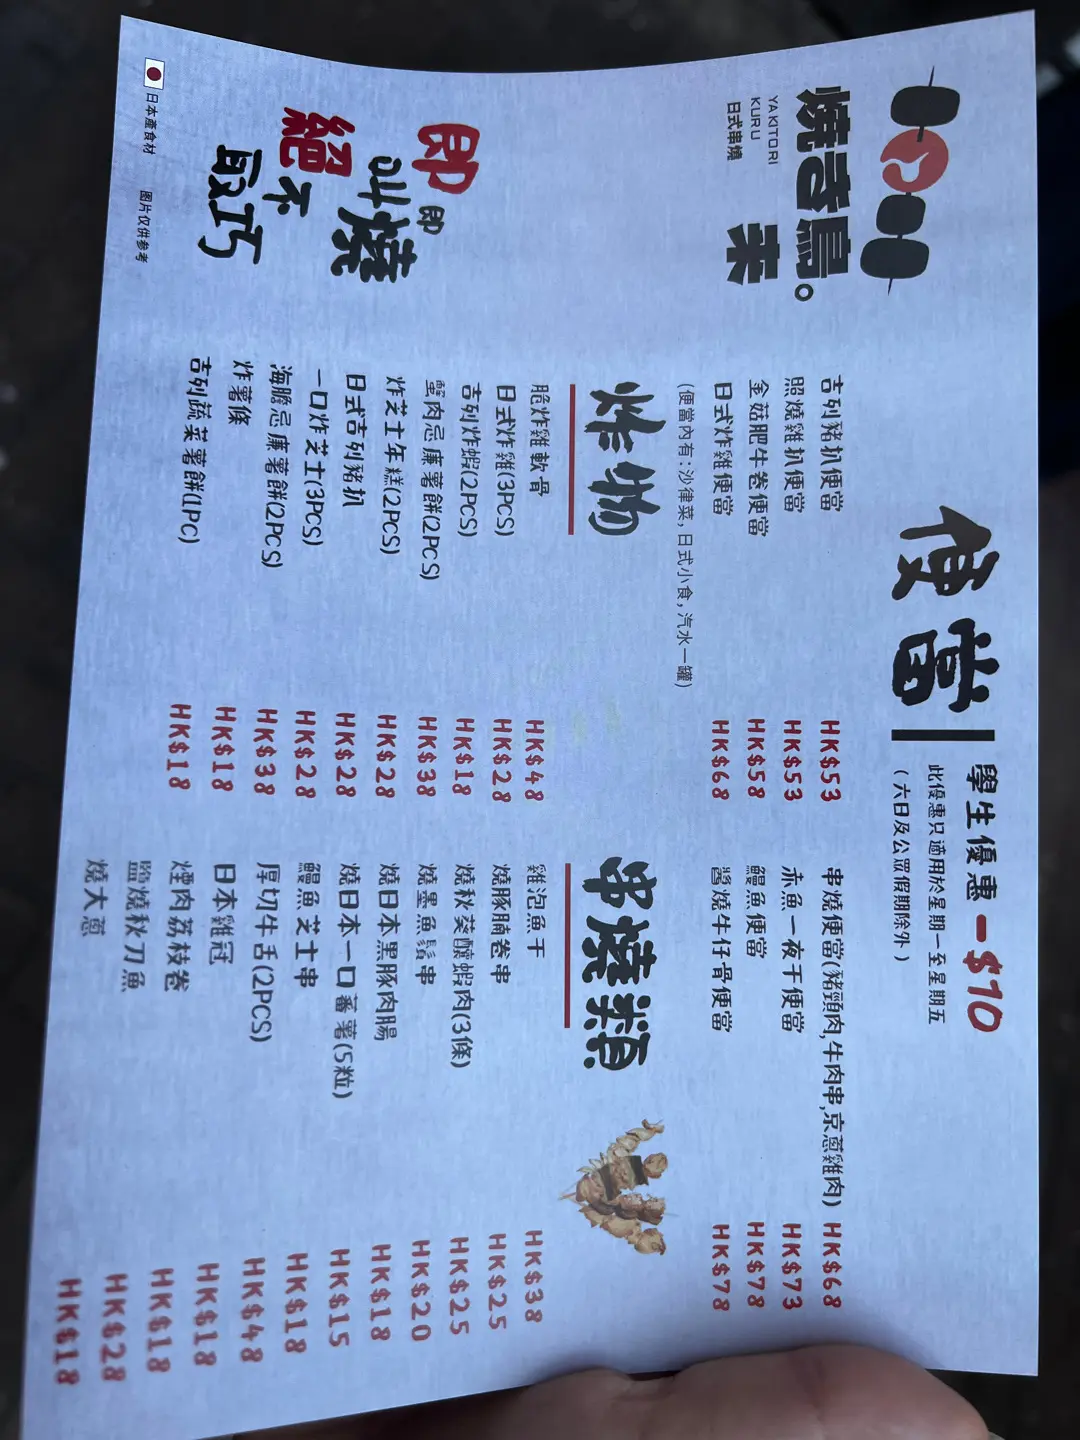 燒き鳥。
来
YAKITORI
KURU
日式串燒
便當
學生優惠-$10
此優惠只適用於星期一至星期五
(六日及公眾假期除外)
吉列豬扒便當 HK$53
照燒雞扒便當 HK$53
金菇肥牛卷便當 HK$58
日式炸雞便當 HK$68
(便當內有:沙律菜,日式小食,汽水一罐)
串燒便當(豬頸肉,牛肉串,京蔥雞肉) HK$68
赤魚一夜干便當 HK$73
鰻魚便當 HK$78
醬燒牛仔骨便當 HK$78
炸物
脆炸雞軟骨 HK$48
日式炸雞(3PCS) HK$28
吉列炸蝦(2PCS) HK$18
蟹肉忌廉薯餅(2PCS) HK$38
炸芝士年糕(2PCS) HK$28
日式吉列豬扒 HK$28
一口炸芝士(3PCS) HK$28
海膽忌廉薯餅(2PCS) HK$38
炸薯條 HK$18
吉列蔬菜薯餅(1PC) HK$18
串燒類
雞泡魚干 HK$38
燒豚腩卷串 HK$25
燒秋葵釀蝦肉(3條) HK$25
燒墨魚鬚串 HK$20
燒日本黑豚肉腸 HK$18
燒日本一口蕃薯(5粒) HK$15
鰻魚芝士串 HK$18
厚切牛舌(2PCS) HK$48
日本雞冠 HK$18
煙肉荔枝卷 HK$18
鹽燒秋刀魚 HK$28
燒大蔥 HK$18
即叫即燒
絕不取巧
日本產食材
图片仅供参考